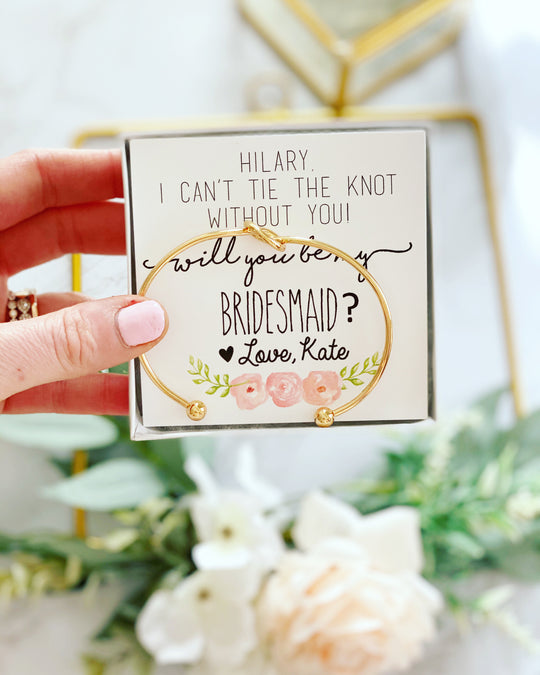 HILARY,
I CAN'T TIE THE KNOT
WITHOUT YOU!
will you be my
BRIDESMAID?
♥ Love, Kate